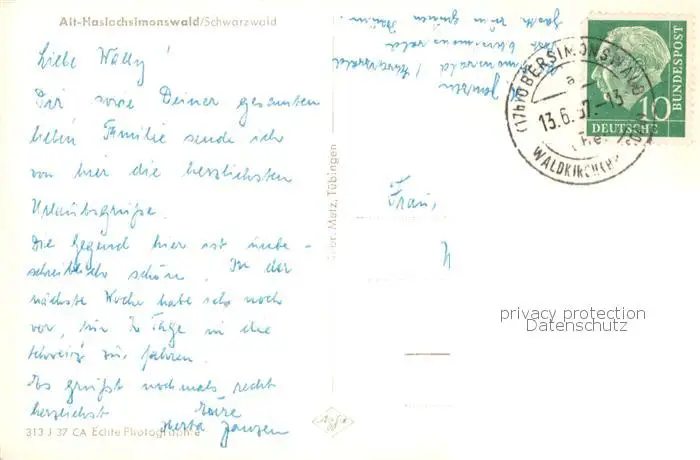 Alt-Haslachsimonswald/Schwarzwald
Liebe Wally!
Dir sowie Deiner gesamten
lieben Familie sende ich
von hier die herzlichsten
Urlaubsgrüße.
Die Gegend hier ist unbe-
schreiblich schön. In der
nächste Woche habe ich noch
vor, für 2 Tage in die
Schweiz zu fahren.
Es grüßt nochmals recht
herzlichst Eure
Herta Janzen
313 J 37 CA Echte Photographie
Gebr. Metz, Tübingen
Gasth. zum grünen Baum
Post Obersimonswald
simonswald / Schwarzwald
Janzen
(17b) OBERSIMONSWALD
a
13.6.57.-13
WALDKIRCH
10
DEUTSCHE
BUNDESPOST
Frau
privacy protection
Datenschutz